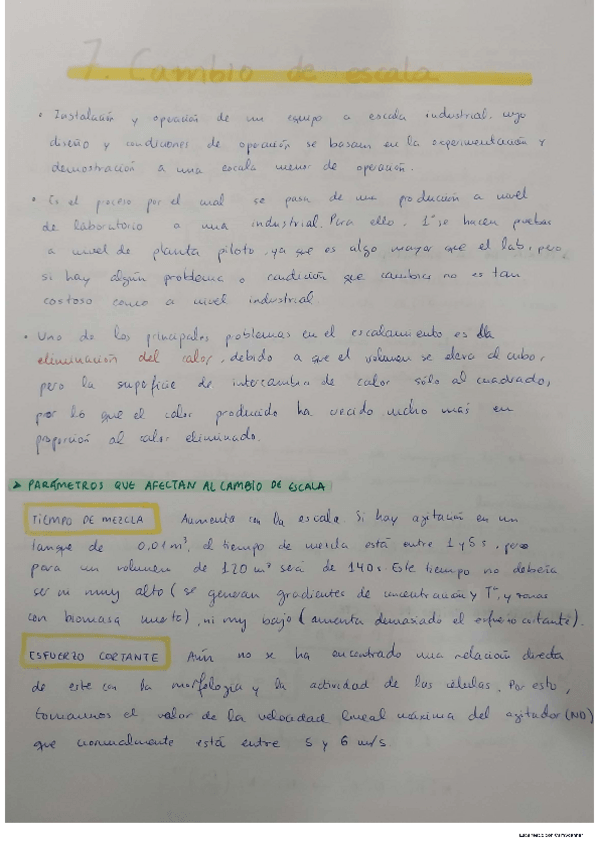 7. Cambio de escala
• Instalación y operación de un equipo a escala industrial. cuyo
diseño y condiciones de operación se basan en la experimentación y
demostración a una escala menor de operación.
• Es el proceso por el cual se pasa de una producción a nivel
de laboratorio a una industrial. Para ello, 1º se hacen pruebas
a nivel de planta piloto, ya que es algo mayor que el lab, pero
si hay algún problema o condición que cambiar no es tan
costoso como a nivel industrial.
• Uno de los principales problemas en el escalamiento es la
eliminación del calor, debido a que el volumen se eleva al cubo,
pero la superficie de intercambio de calor sólo al cuadrado,
por lo que el calor producido ha crecido mucho más en
proporción al calor eliminado.
> PARÁMETROS QUE AFECTAN AL CAMBIO DE ESCALA
TIEMPO DE MEZCLA Aumenta con la escala. Si hay agitación en un
tanque de 0,01 m³, el tiempo de mezcla está entre 1 y 5 s, pero
para un volumen de 120 m³ será de 140 s. Este tiempo no debería
ser ni muy alto (se generan gradientes de concentración y Tª, y zonas
con biomasa muerta), ni muy bajo (aumenta demasiado el esfuerzo cortante).
ESFUERZO CORTANTE Aún no se ha encontrado una relación directa
de este con la morfología y la actividad de las células. Por esto,
tomamos el valor de la velocidad lineal máxima del agitador (ND)
que normalmente está entre 5 y 6 m/s.